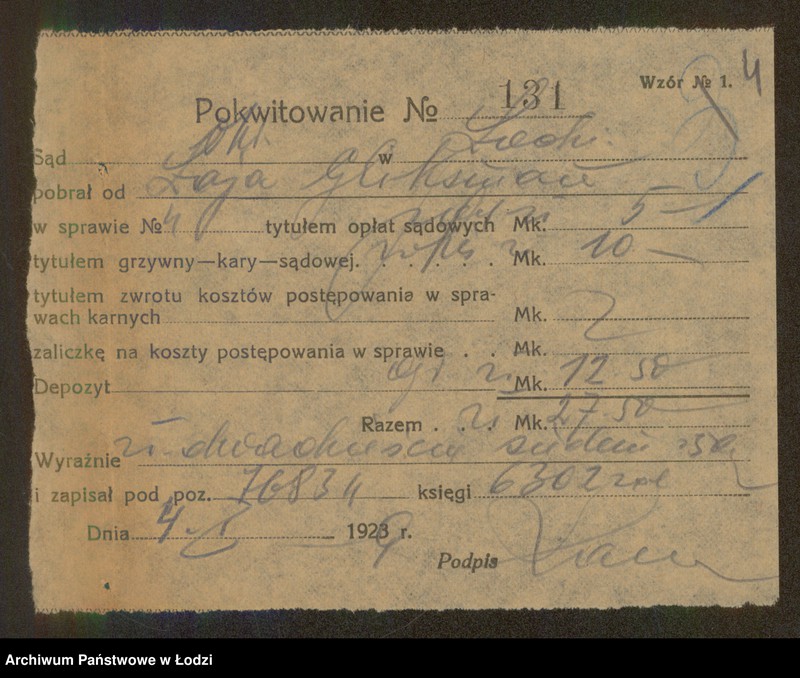 Wzór № 1. 4
Pokwitowanie № 131
Sąd Okr. w Łodzi.
pobrał od Łaja Gliksman
w sprawie № 4 tytułem opłat sądowych Mk. 5 –
tytułem grzywny—kary—sądowej. Mk. 10 –
tytułem zwrotu kosztów postępowania w spra-
wach karnych Mk.
zaliczkę na koszty postępowania w sprawie . . Mk.
Depozyt Mk. 12.50
Razem . . . zł. Mk. 27.50
Wyraźnie zł. dwadzieścia siedem 50
i zapisał pod poz. 76834 księgi 6302
Dnia 4. X 1923 r.
Podpis
Archiwum Państwowe w Łodzi